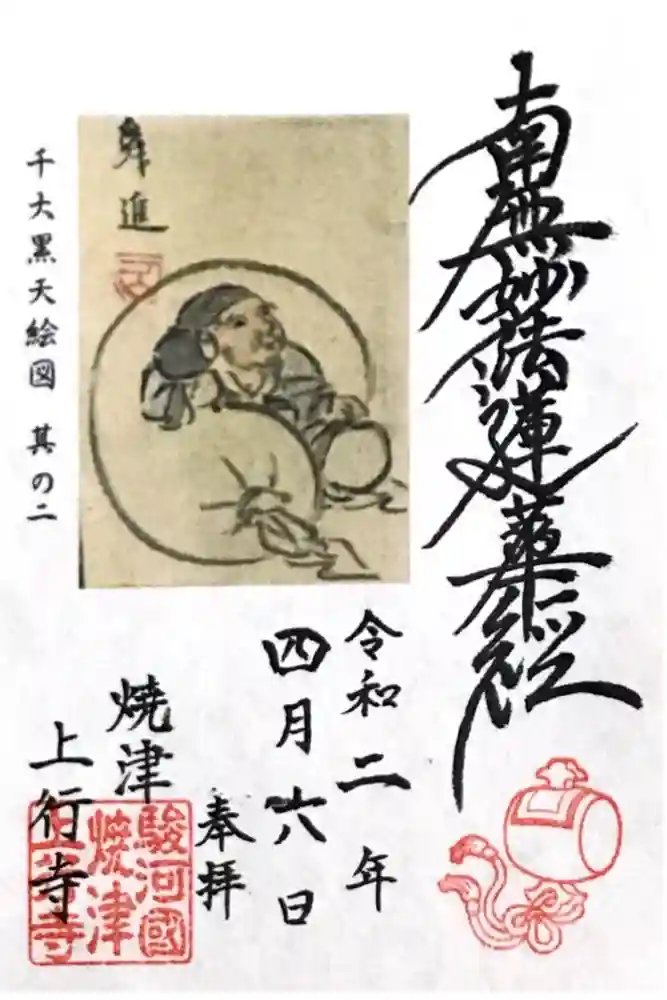 南無妙法蓮華経
舞進
千大黒天絵図 其の二
令和二年
四月六日
奉拝
焼津
上行寺
駿河國
焼津
上行寺